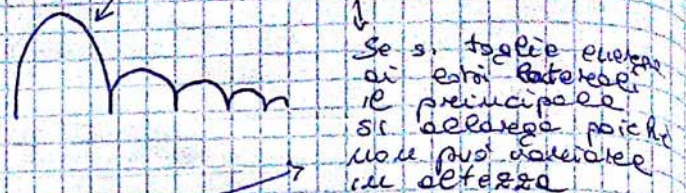 Se si toglie energia
ai lobi laterali
il principale
si allarga poichè
non può variare
in altezza